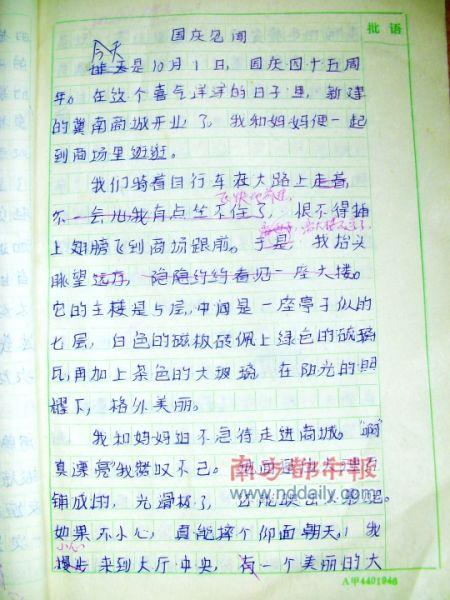 批语
国庆见闻
今天
昨天是10月1日，国庆四十五周
年。在这个喜气洋洋的日子里，新建
的冀南商城开业了，我和妈妈便一起
到商场里逛逛。
我们骑着自行车在大路上走着，
飞快地前进，
不一会儿我有点坐不住了，恨不得插
上翅膀飞到商场跟前。于是，我抬头
眺望远方，隐隐约约看见一座大楼。
它的主楼是5层，中间是一座亭子似的
七层，白色的磁板砖佩上绿色的琉璃
瓦，再加上茶色的大玻璃，在阳光的照
耀下，格外美丽。
我和妈妈迫不急待走进商城。"啊
真漂亮"我赞叹不已。
南方都市报
铺成的，光滑极了，
www.nddaily.com
如果不小心，真能摔个仰面朝天！我
小心
慢步来到大厅中央，有一个美丽的大
A甲4401946